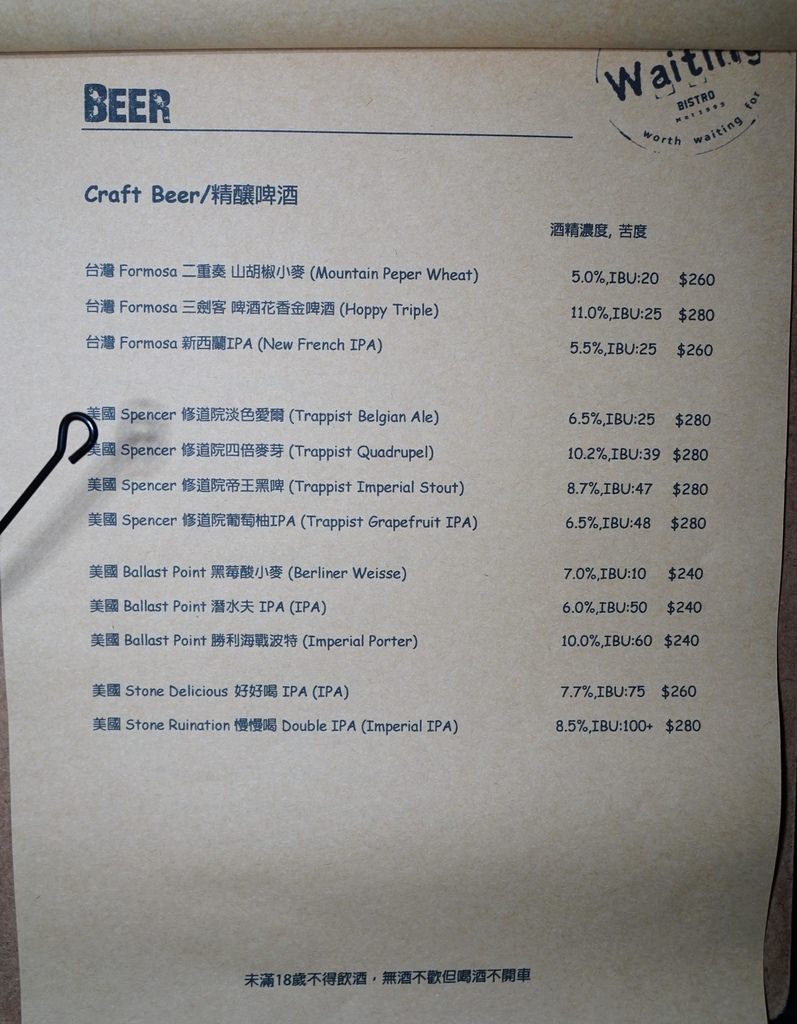 BEER
Waiting
BISTRO
worth waiting for
Craft Beer/精釀啤酒
酒精濃度, 苦度
台灣 Formosa 二重奏 山胡椒小麥 (Mountain Peper Wheat) 5.0%,IBU:20 $260
台灣 Formosa 三劍客 啤酒花香金啤酒 (Hoppy Triple) 11.0%,IBU:25 $280
台灣 Formosa 新西蘭IPA (New French IPA) 5.5%,IBU:25 $260
美國 Spencer 修道院淡色愛爾 (Trappist Belgian Ale) 6.5%,IBU:25 $280
美國 Spencer 修道院四倍麥芽 (Trappist Quadrupel) 10.2%,IBU:39 $280
美國 Spencer 修道院帝王黑啤 (Trappist Imperial Stout) 8.7%,IBU:47 $280
美國 Spencer 修道院葡萄柚IPA (Trappist Grapefruit IPA) 6.5%,IBU:48 $280
美國 Ballast Point 黑莓酸小麥 (Berliner Weisse) 7.0%,IBU:10 $240
美國 Ballast Point 潛水夫 IPA (IPA) 6.0%,IBU:50 $240
美國 Ballast Point 勝利海戰波特 (Imperial Porter) 10.0%,IBU:60 $240
美國 Stone Delicious 好好喝 IPA (IPA) 7.7%,IBU:75 $260
美國 Stone Ruination 慢慢喝 Double IPA (Imperial IPA) 8.5%,IBU:100+ $280
未滿18歲不得飲酒，無酒不歡但喝酒不開車